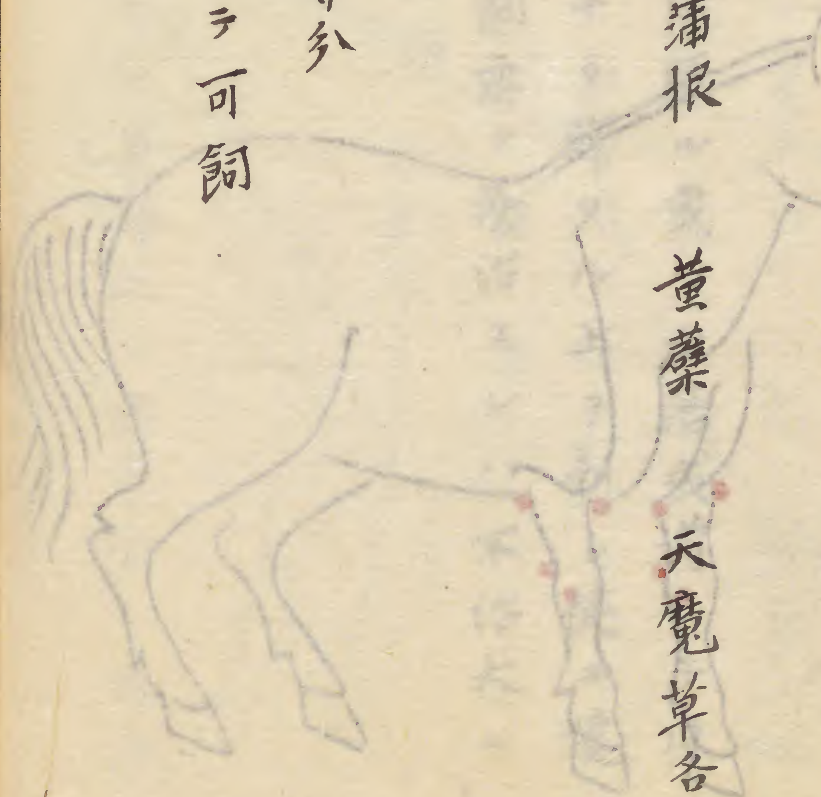 蒲根 黄蘗 天魔草各
分
テ可飼